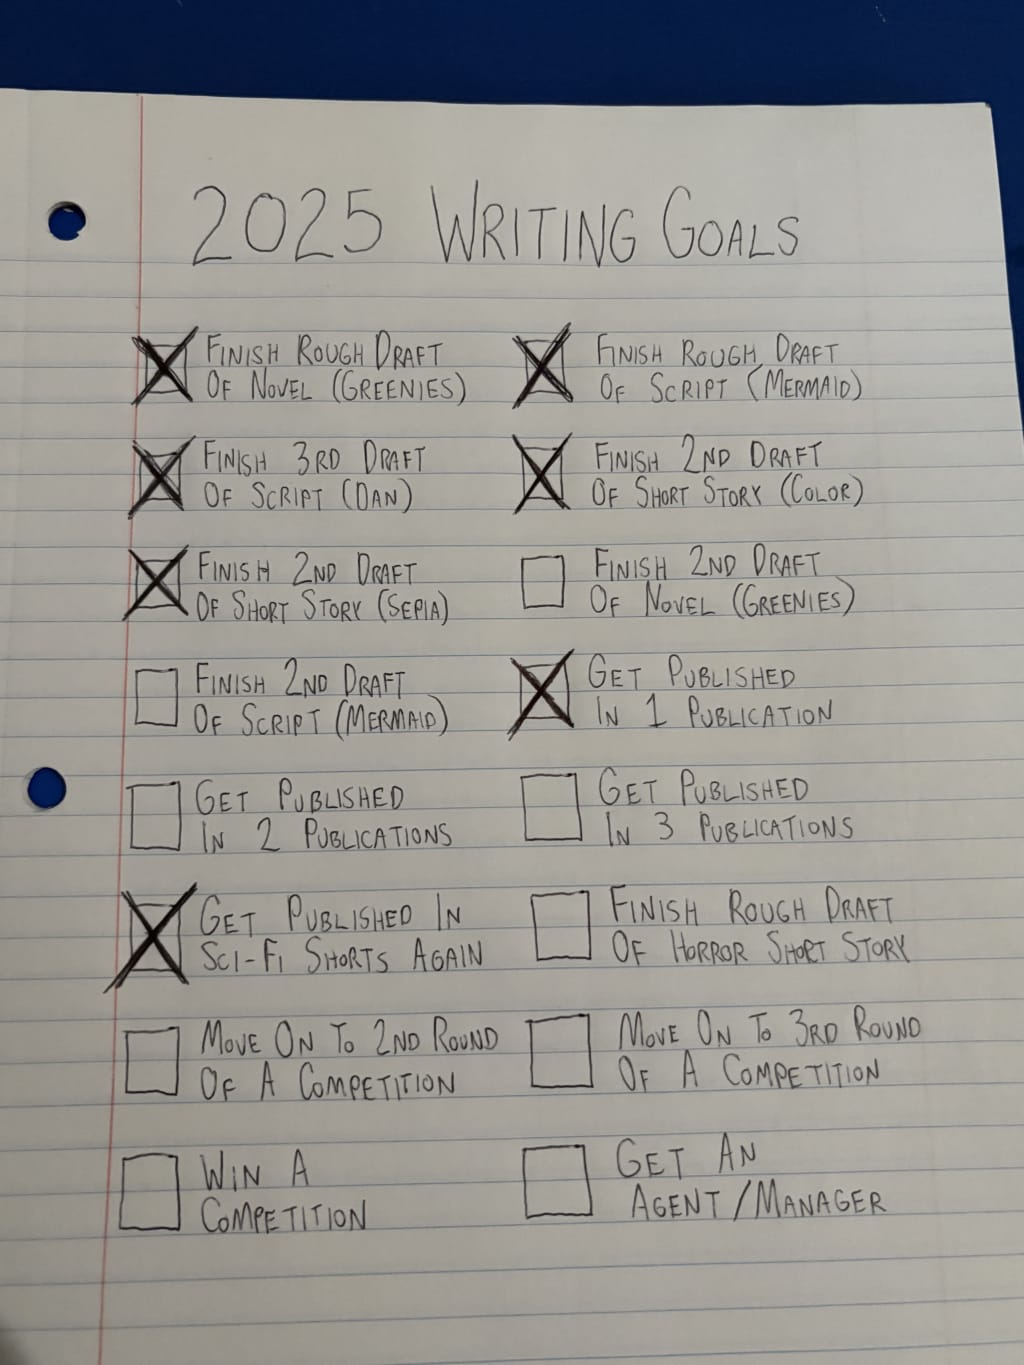 2025 WRITING GOALS
FINISH ROUGH DRAFT
OF NOVEL (GREENIES)
FINISH ROUGH DRAFT
OF SCRIPT (MERMAID)
FINISH 3RD DRAFT
OF SCRIPT (DAN)
FINISH 2ND DRAFT
OF SHORT STORY (COLOR)
FINISH 2ND DRAFT
OF SHORT STORY (SEPIA)
FINISH 2ND DRAFT
OF NOVEL (GREENIES)
FINISH 2ND DRAFT
OF SCRIPT (MERMAID)
GET PUBLISHED
IN 1 PUBLICATION
GET PUBLISHED
IN 2 PUBLICATIONS
GET PUBLISHED
IN 3 PUBLICATIONS
GET PUBLISHED IN
SCI-FI SHORTS AGAIN
FINISH ROUGH DRAFT
OF HORROR SHORT STORY
MOVE ON TO 2ND ROUND
OF A COMPETITION
MOVE ON TO 3RD ROUND
OF A COMPETITION
WIN A
COMPETITION
GET AN
AGENT/MANAGER